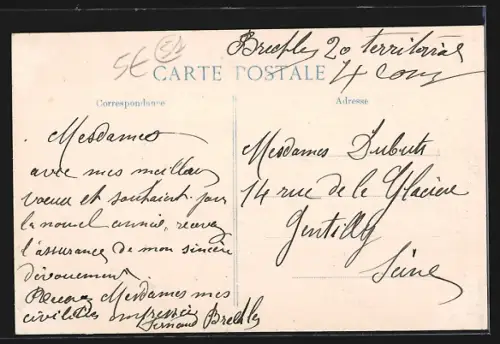 20 territorial
4 Com
CARTE POSTALE
Correspondance
Adresse
Mesdames
avec mes meilleurs
voeux et souhaits pour
la nouvel année, recevez
l'assurance de mon sincère
dévouement
Mesdames mes
civilités
Fernand
Mesdames
14 rue de la Glacière
Gentilly
Seine